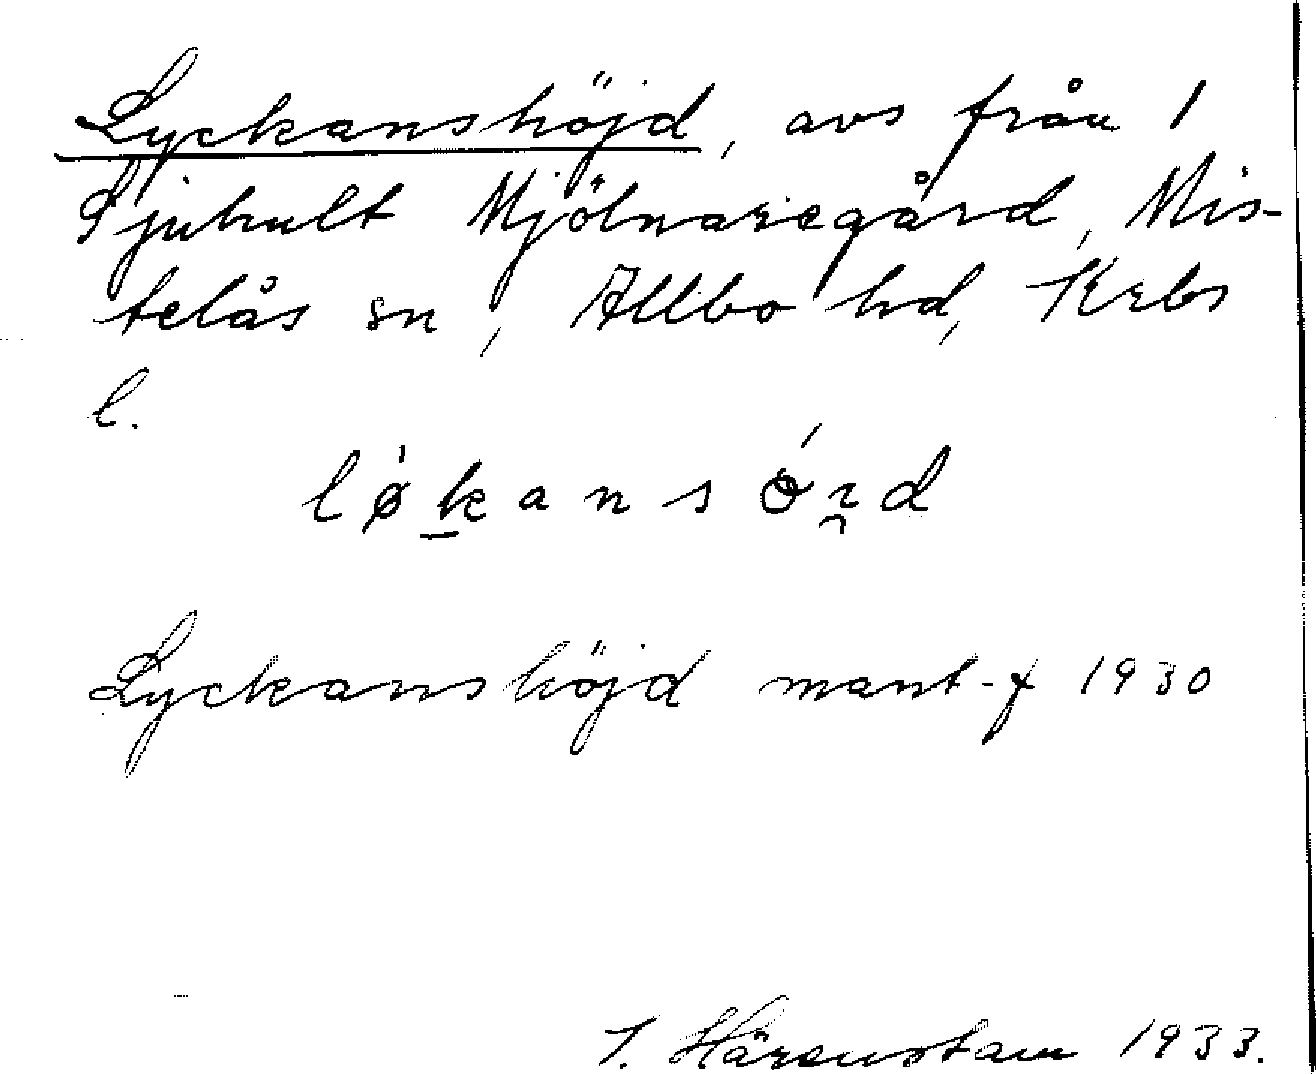 Lyckanshöjd, avs från 1
Sjuhult Mjölnaregård, Mis-
telås sn, Allbo hd, Krbs
l.
lø̍ḵansó̵i̯d
Lyckanshöjd mant-f 1930
I. Härenstam 1933.